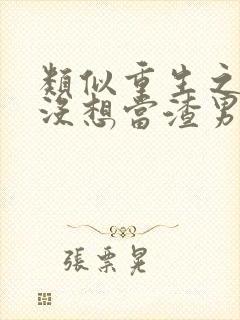 類似重生之
沒想當渣男
張票晃